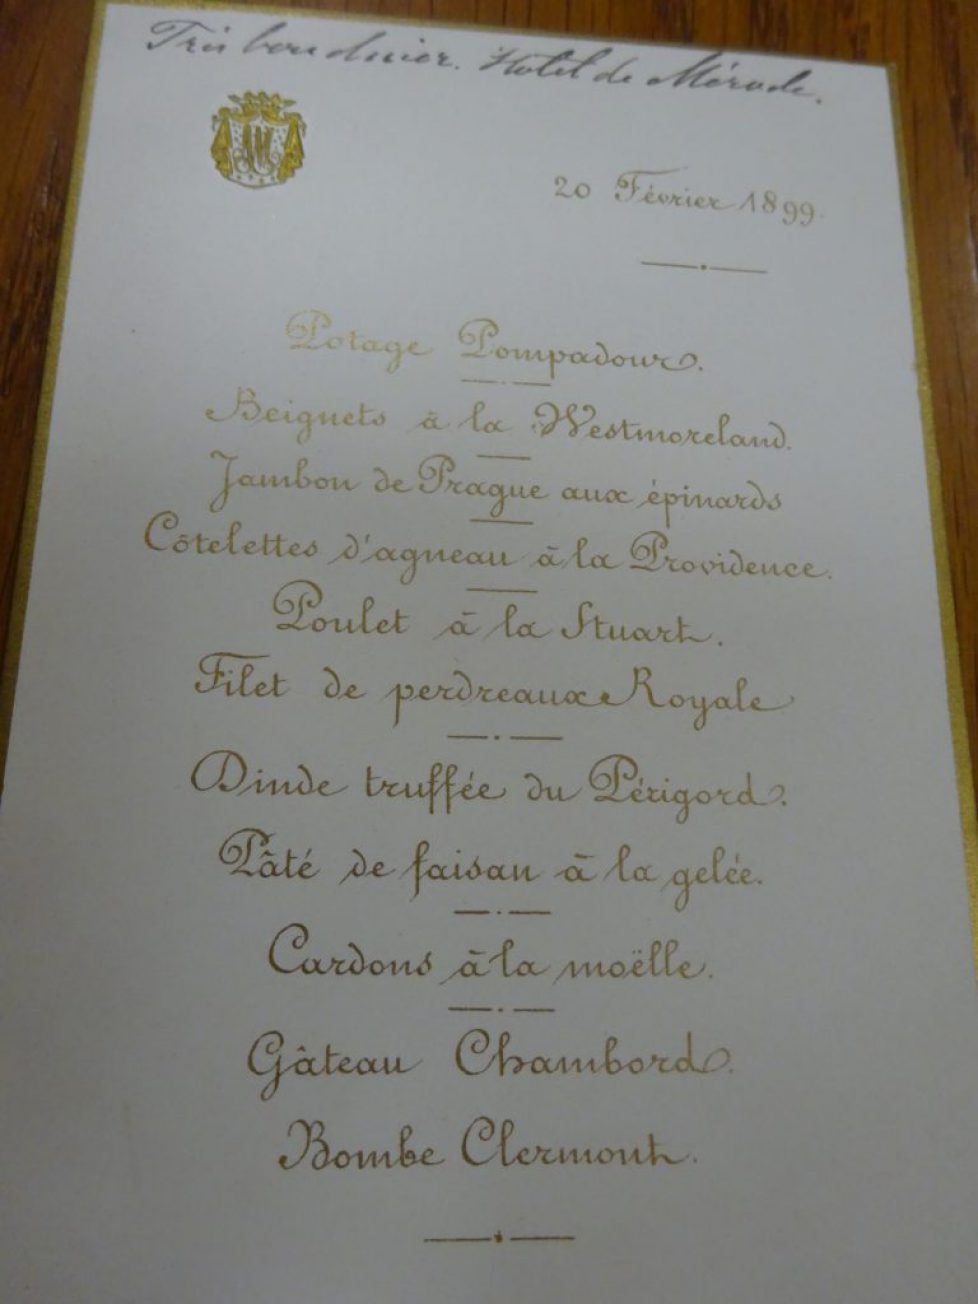 Très bon dîner. Hotel de Mérode.
20 Février 1899.
Potage Pompadour.
Beignets à la Westmoreland.
Jambon de Prague aux épinards
Côtelettes d'agneau à la Providence.
Poulet à la Stuart.
Filet de perdreaux Royale
Dinde truffée du Périgord.
Pâté de faisan à la gelée.
Cardons à la moëlle.
Gâteau Chambord.
Bombe Clermont.